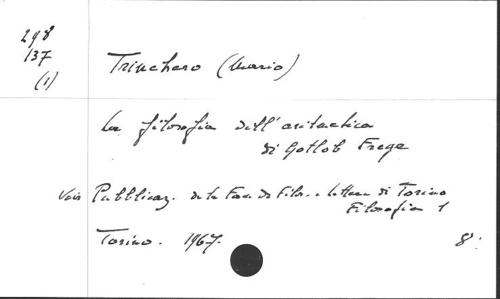 298
137
(1)
Trinchero (Mario)
La filosofia dell'aritmetica
di Gotlob Frege
Voir Pubblicaz. della Fac. di Filos. e lettere di Torino
Filosofia 1
Torino. 1967.
8°.